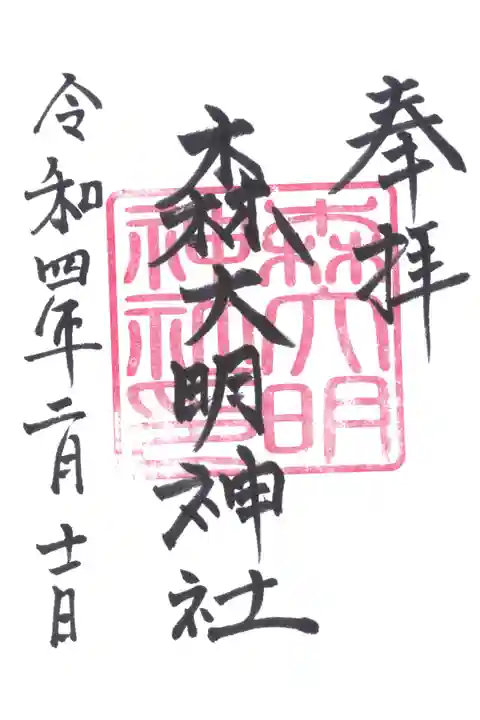 奉拝
森大明神社
令和四年二月十二日
森大明
神社印